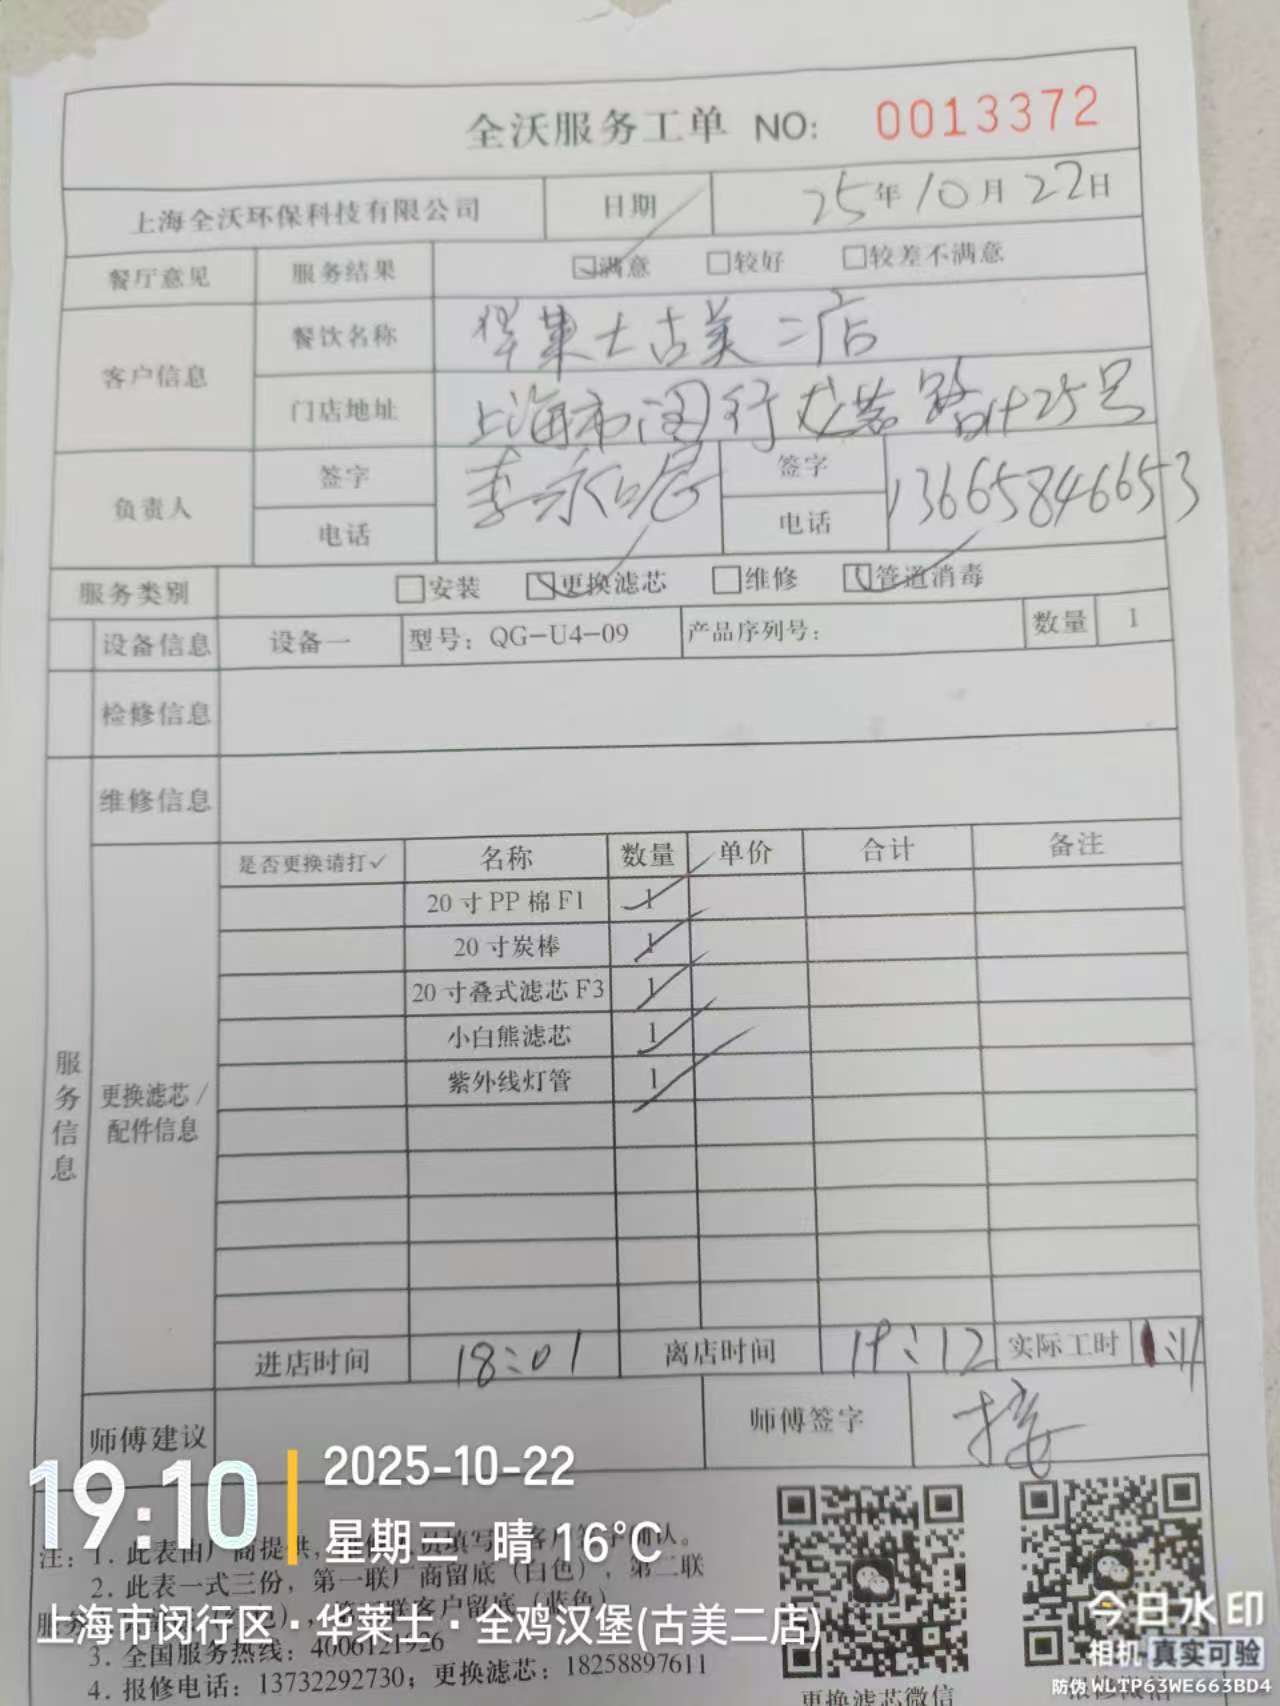 全沃服务工单 NO: 0013372
上海全沃环保科技有限公司 日期 25年10月22日
餐厅意见 服务结果 ☑满意 □较好 □较差不满意
客户信息 餐饮名称 华莱士古美二店
门店地址 上海市闵行龙茗路1425号
负责人 签字 李永 签字
电话 电话 13665846653
服务类别 □安装 ☑更换滤芯 □维修 ☑管道消毒
设备信息 设备一 型号：QG-U4-09 产品序列号： 数量 1
检修信息
维修信息
服务信息
更换滤芯/
配件信息
是否更换请打✓ 名称 数量 单价 合计 备注
20寸PP棉F1 1
20寸炭棒 1
20寸叠式滤芯F3 1
小白熊滤芯 1
紫外线灯管 1
进店时间 18:01 离店时间 19:12 实际工时 1:11
师傅建议 师傅签字
19:10
2025-10-22
星期三 晴 16°C
注：1. 此表由厂商提供，
2. 此表一式三份，第一联厂商留底（白色），第二联
联客户留底（蓝色）
上海市闵行区·华莱士·全鸡汉堡(古美二店)
3. 全国服务热线：4006121926
4. 报修电话：13732292730；更换滤芯：18258897611
更换滤芯微信
今日水印
相机 真实可验
防伪 WLTP63WE663BD4